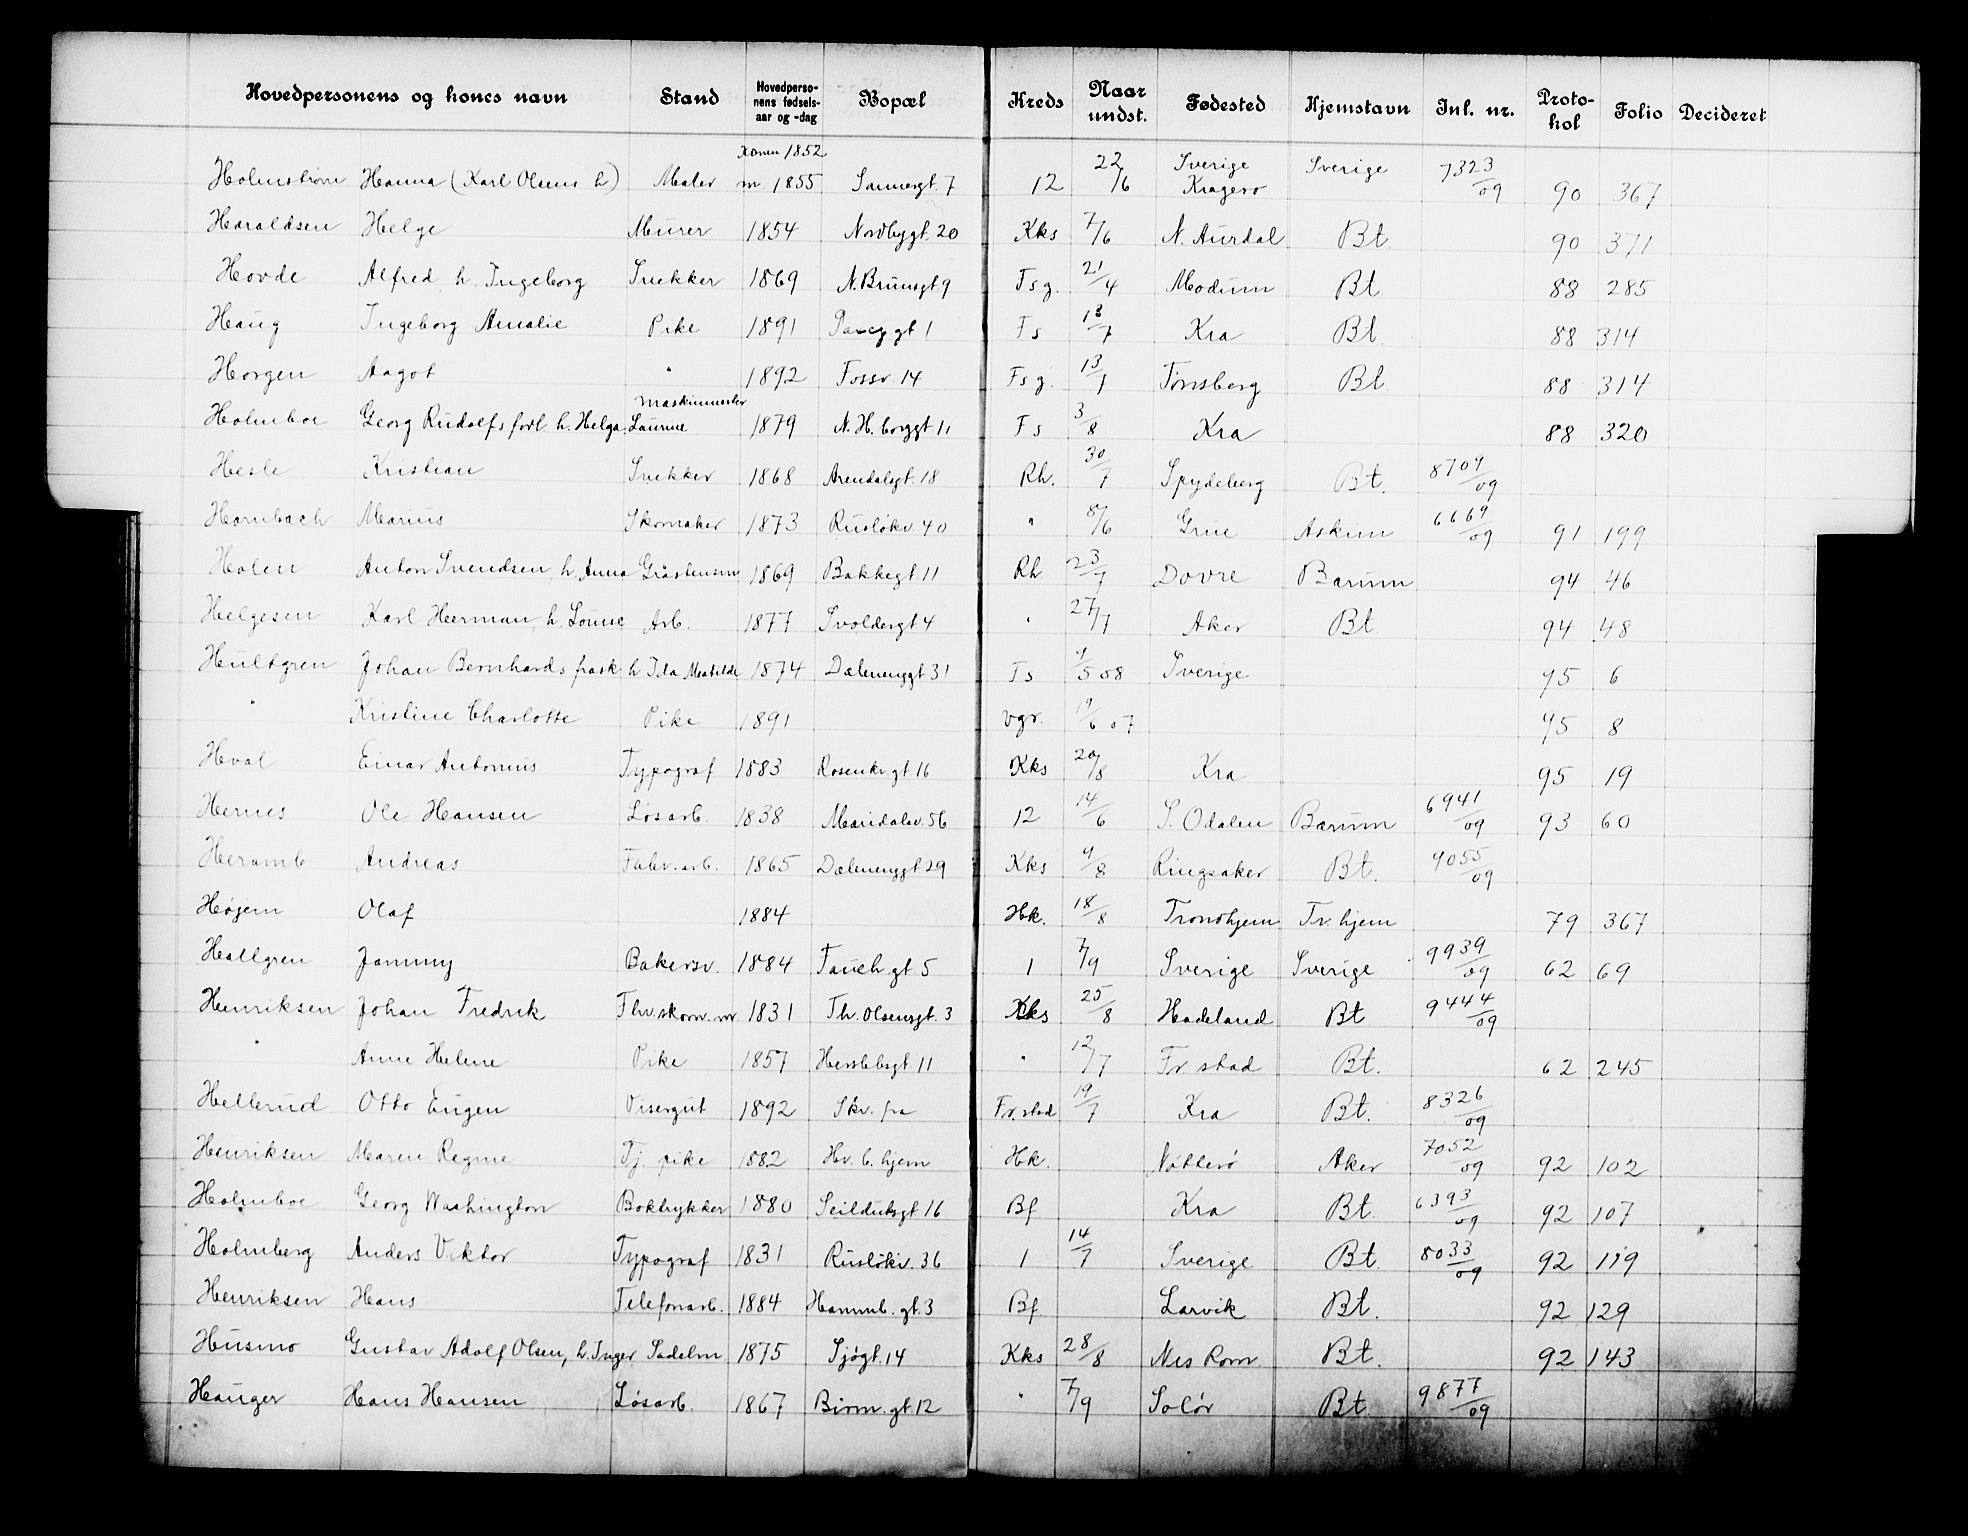 Hovedpersonens og kones navn Stand Hovedperso-nens fødsels-aar og -dag Bopæl Kreds Naar undst. Fødested Hjemstavn Inl. nr. Proto-kol Folio Decideret
Konen 1852
Holmstrøm Hanna (Karl Olsens h) Maler m. 1855 Sannergt. 7 12 22/6 Sverige Kragerø Sverige 7323/09 90 367
Haraldsen Helge Murer 1854 Nordbygt. 20 Kks 7/6 N. Aurdal Bt. 90 371
Hovde Alfred, h. Ingeborg Snekker 1869 N. Brunsgt 9 Fsg. 21/4 Modum Bt 88 285
Haug Ingeborg Amalie Pike 1891 gt 1 Fs 13/7 Kra Bt. 88 314
Horgen Aagot " 1892 Fossv. 14 Fsg. 13/7 Tønsberg Bt. 88 314
Holmboe Georg Rudolfs forl. h. Helga Laurine Maskinmester 1879 N. H. borggt 11 Fs 3/8 Kra 88 320
Hesle Kristian Snekker 1868 Arendalsgt. 18 Rh. 30/7 Spydeberg Bt. 8709/09
Hambach Marius Skomaker 1873 Rusløkv. 40 " 8/6 Grue Askim 6669/09 91 199
Holen Anton Svendsen, h. Anna Gråstensm 1869 Bakkegt. 11 Rh 23/7 Dovre Bærum 94 46
Helgesen Karl Herman, h. Louise Arb. 1877 Svoldergt 4 " 27/7 Aker Bt. 94 48
Hultgren Johan Bernhards frask. h Ida Matilde 1874 Dælenenggt 31 Fs 9/5 08 Sverige 95 6
" Kristine Charlotte Pike 1891 vgr. 19/6 07 95 8
Hval Einar Antonius Typograf 1883 Rosenkr. gt. 16 Kks 20/8 Kra 95 19
Hernes Ole Hansen Løsarb. 1838 Maridalsv. 56 12 14/6 S. Odalen Bærum 6941/09 93 60
Heramb Andreas Fabr. arb. 1865 Dælenenggt 29 Kks 9/8 Ringsaker Bt. 9055/09
Højem Olaf 1884 Hk. 18/8 Trondhjem Tr. hjem 79 367
Hallgren Jommy Bakersv. 1884 Fauch. gt. 5 1 7/9 Sverige Sverige 9939/09 62 69
Henriksen Johan Fredrik Fhv. skom. m 1831 Th. Olsensgt. 3 Kks 25/8 Hadeland Bt 9444/09
" Anne Helene Pike 1857 Herslebsgt. 11 " 12/7 Fr. stad Bt. 62 245
Hellerud Otto Eugen Visergut 1892 Skr. fra Fr. stad 19/7 Kra Bt. 8326/09
Henriksen Maren Regine Tj. pike 1882 Hv. b. hjem Hk. Nøtterø Aker 7052/09 92 102
Holmboe Georg Washington Boktrykker 1880 Seilduksgt 16 Bf Kra Bt. 6393/09 92 107
Holmberg Anders Viktor Typograf 1831 Rusløkv. 36 1 14/7 Sverige Bt. 8033/09 92 119
Henriksen Hans Telefonarb. 1884 Hammb. gt. 3 Bf Larvik Bt. 92 129
Husmo Gustav Adolf Olsen, h. Inger Sadelm 1875 Sjøgt. 14 Kks 28/8 Nes Rom. Bt. 92 143
Hauger Hans Hansen Løsarb. 1867 Birm. gt 12 " 7/9 Solør Bt. 9877/09